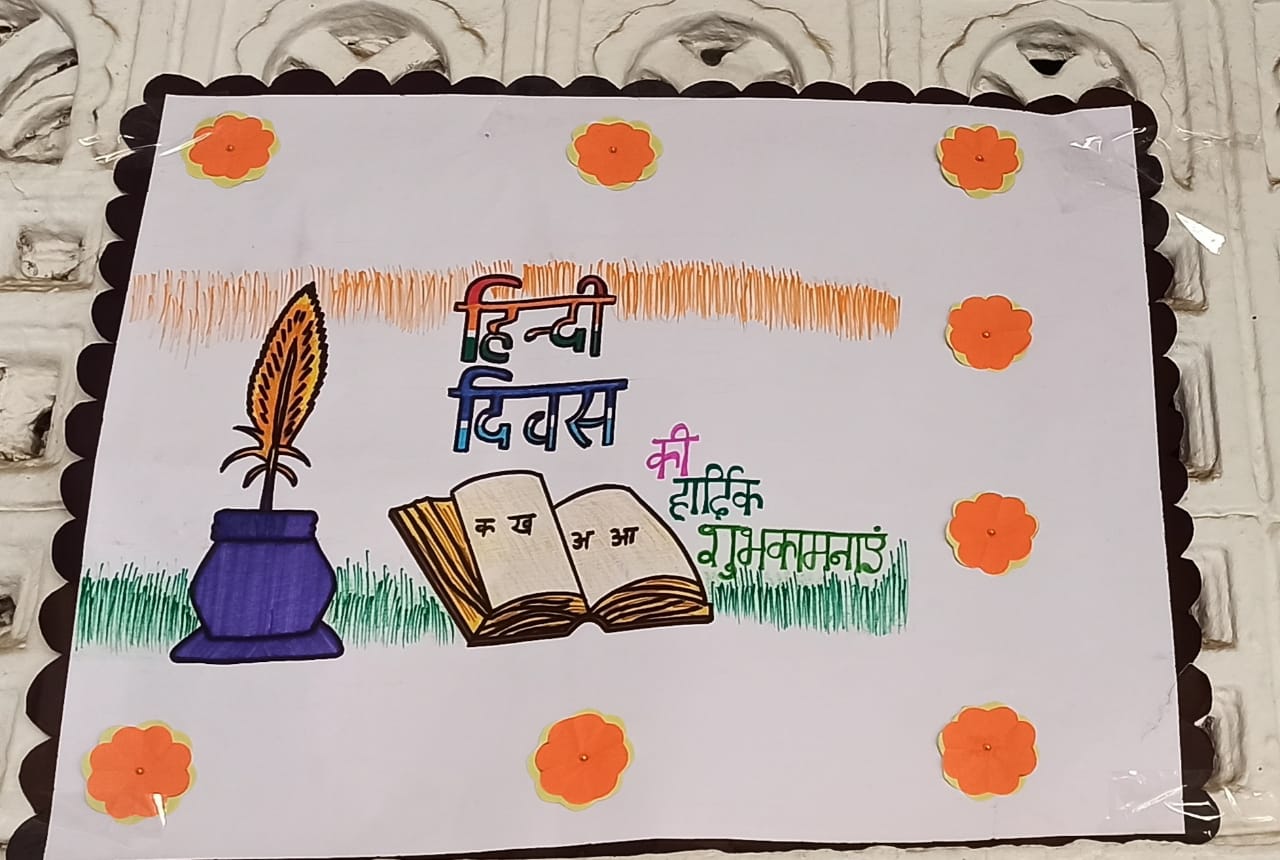 हिन्दी
दिवस
की
हार्दिक
शुभकामनाएं
क ख अ आ